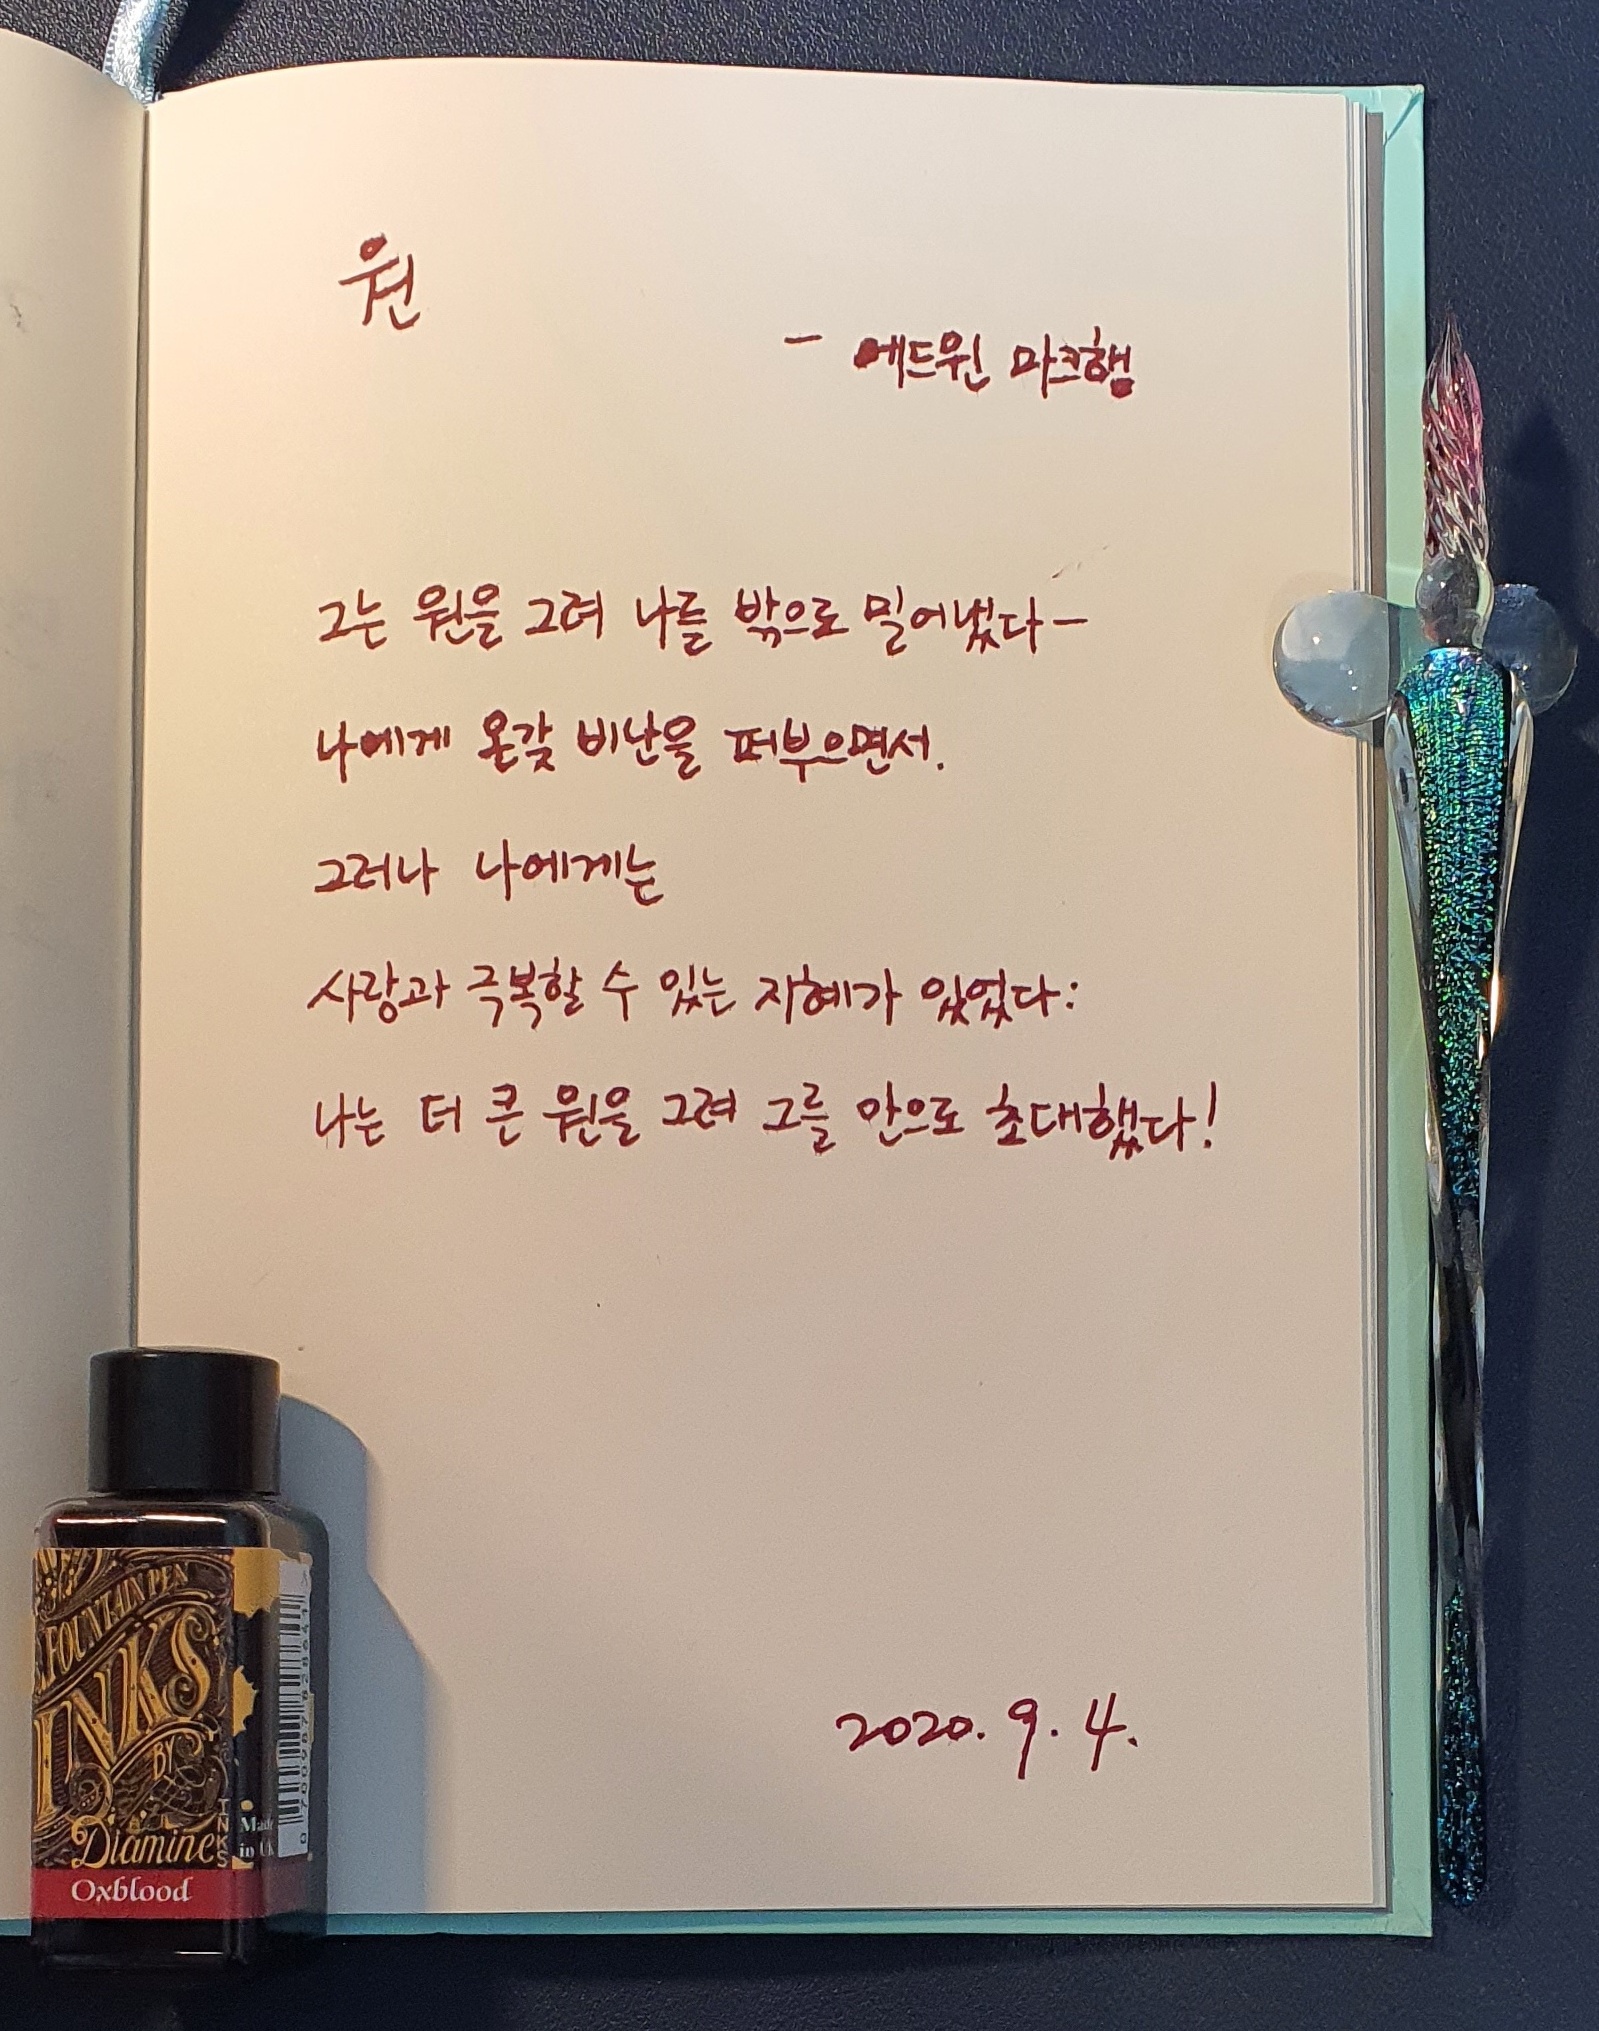 원
- 에드윈 마크햄
그는 원을 그려 나를 밖으로 밀어냈다-
나에게 온갖 비난을 퍼부으면서.
그러나 나에게는
사랑과 극복할 수 있는 지혜가 있었다:
나는 더 큰 원을 그려 그를 안으로 초대했다!
2020. 9. 4.
FOUNTAIN PEN
INKS
BY
Diamine
Oxblood
INKS
Made
in UK